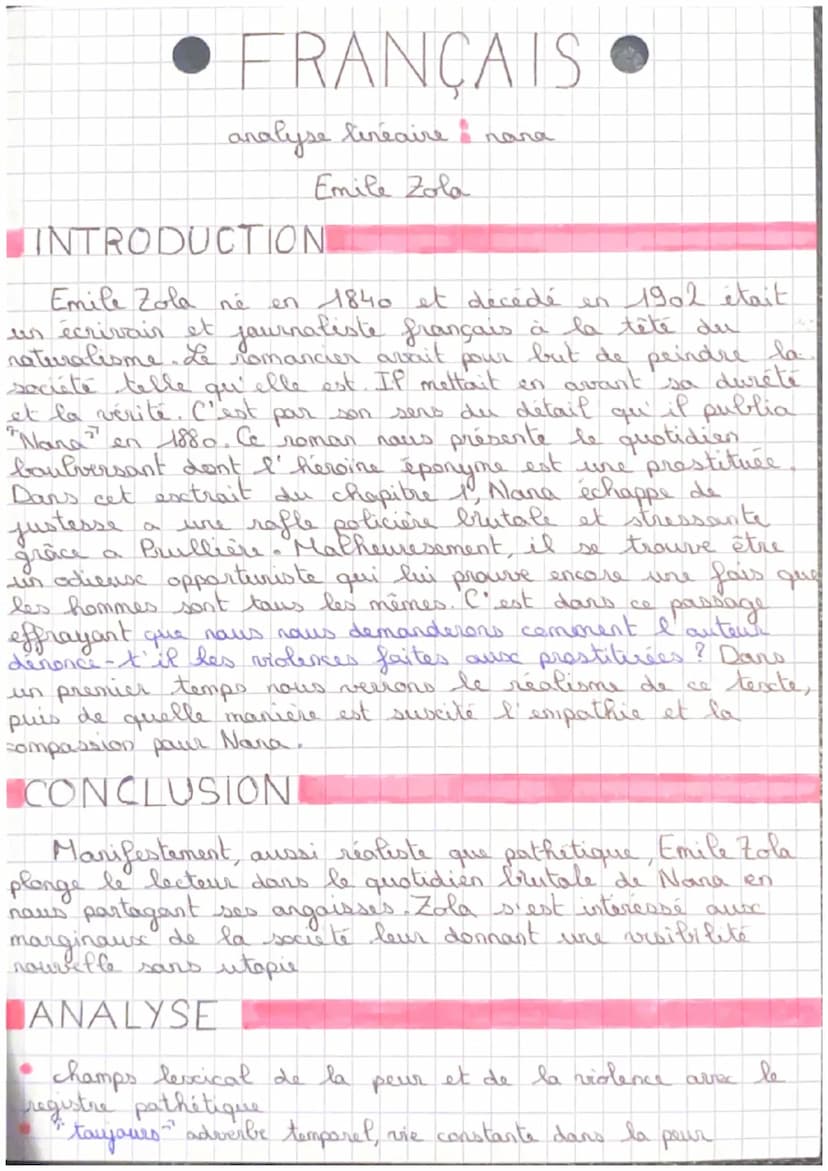 FRANÇAIS
analyse linéaire : nana
Emile Zola
INTRODUCTION
Emile Zola né en 1840 et décédé en 1902 était
un écrivain et journaliste français à la tête du
naturalisme. Le romancier avait pour but de peindre la
société telle qu'elle est. Il mettait en avant sa dureté
et la vérité. C'est par son sens du détail qu'il publia
"Nana" en 1880. Ce roman nous présente le quotidien
boulversant dont l'héroine éponyme est une prostituée.
Dans cet extrait du chapitre 1, Nana échappe de
justesse a une rafle policière brutale et stressante
grâce a Prullière. Malheuresement, il se trouve être
un odieux opportuniste qui lui prouve encore une fois que
les hommes sont tous les mêmes. C'est dans ce passage
effrayant que nous nous demanderons comment l'auteur
dénonce-t'il les violences faites aux prostituées ? Dans
un premier temps nous verrons le réalisme de ce texte,
puis de quelle manière est suscité l'empathie et la
compassion pour Nana.
CONCLUSION
Manifestement, aussi réaliste que pathétique, Emile Zola
plonge le lecteur dans le quotidien brutale de Nana en
nous partagant ses angoisses. Zola s'est intéressé aux
marginaux de la société leur donnant une visibilité
nouvelle sans utopie
ANALYSE
• champs lexical de la peur et de la violence avec le
registre pathétique
• "toujours" adverbe temporel, vie constante dans la peur